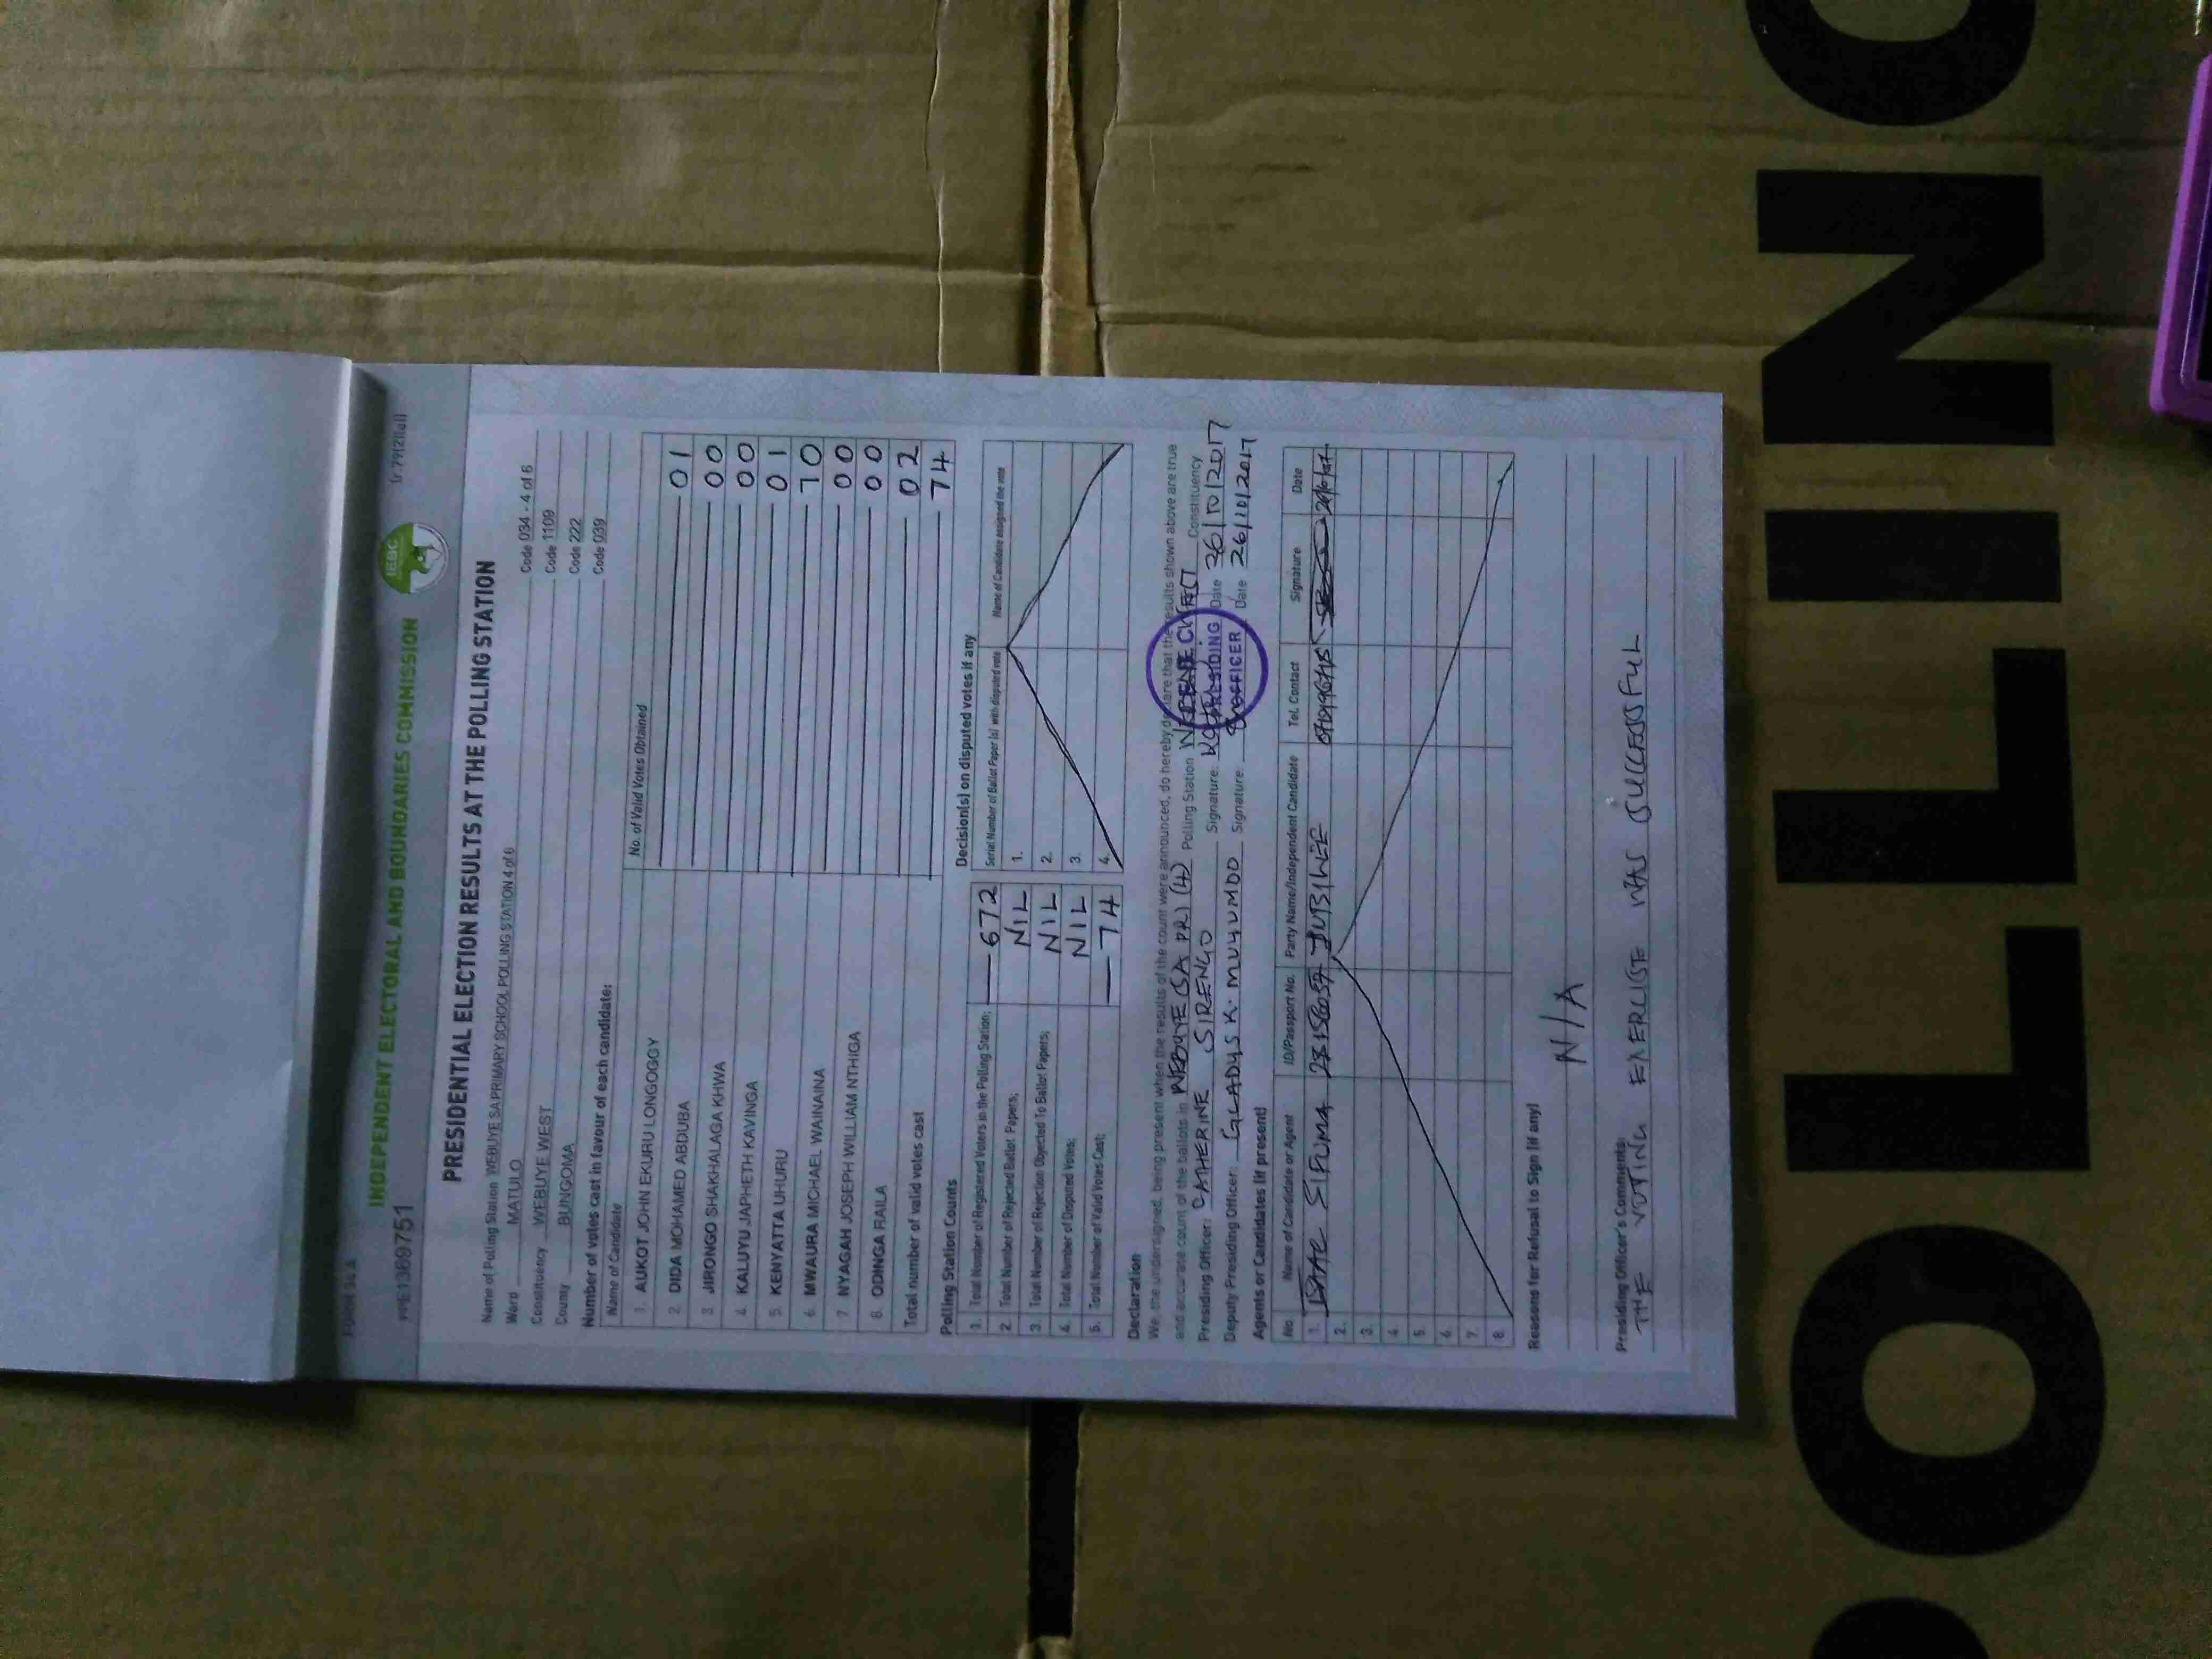 FORM 34A
INDEPENDENT ELECTORAL AND BOUNDARIES COMMISSION
IEBC
PRESIDENTIAL ELECTION RESULTS AT THE POLLING STATION
Name of Polling Station WEBUYE SA PRIMARY SCHOOL POLLING STATION 4 of 6 Code 034 - 4 of 6
Ward MATULO Code 1109
Constituency WEBUYE WEST Code 222
County BUNGOMA Code 039
Number of votes cast in favour of each candidate:
Name of Candidate No. of Valid Votes Obtained
1. AUKOT JOHN EKURU LONGOGGY 01
2. DIDA MOHAMED ABDUBA 00
3. JIRONGO SHAKHALAGA KHWA 00
4. KALUYU JAPHETH KAVINGA 01
5. KENYATTA UHURU 70
6. MWAURA MICHAEL WAINAINA 00
7. NYAGAH JOSEPH WILLIAM NTHIGA 00
8. ODINGA RAILA 02
Total number of valid votes cast 74
Polling Station Counts
1. Total Number of Registered Voters in the Polling Station; 672
2. Total Number of Rejected Ballot Papers; NIL
3. Total Number of Rejection Objected To Ballot Papers; NIL
4. Total Number of Disputed Votes; NIL
5. Total Number of Valid Votes Cast; 74
Decision(s) on disputed votes if any
Serial Number of Ballot Paper (s) with disputed vote Name of Candidate assigned the vote
1.
2.
3.
4.
Declaration
We, the undersigned, being present when the results of the count were announced, do hereby declare that the results shown above are true
and accurate count of the ballots in WEBUYE SA PRI (4) Polling Station Constituency
Presiding Officer: CATHERINE SIRENGO Signature: Date 26/10/2017
Deputy Presiding Officer: GLADYS K. MUYUMDO Signature: Date 26/10/2017
PRESIDING OFFICER
Agents or Candidates (if present)
No. Name of Candidate or Agent ID/Passport No. Party Name/Independent Candidate Tel. Contact Signature Date
1. ISAAC SIFUMA JUBILEE
2.
3.
4.
5.
6.
7.
8.
Reasons for Refusal to Sign (if any)
N/A
Presiding Officer's Comments:
THE VOTING EXERCISE WAS SUCCESSFUL
POLLING